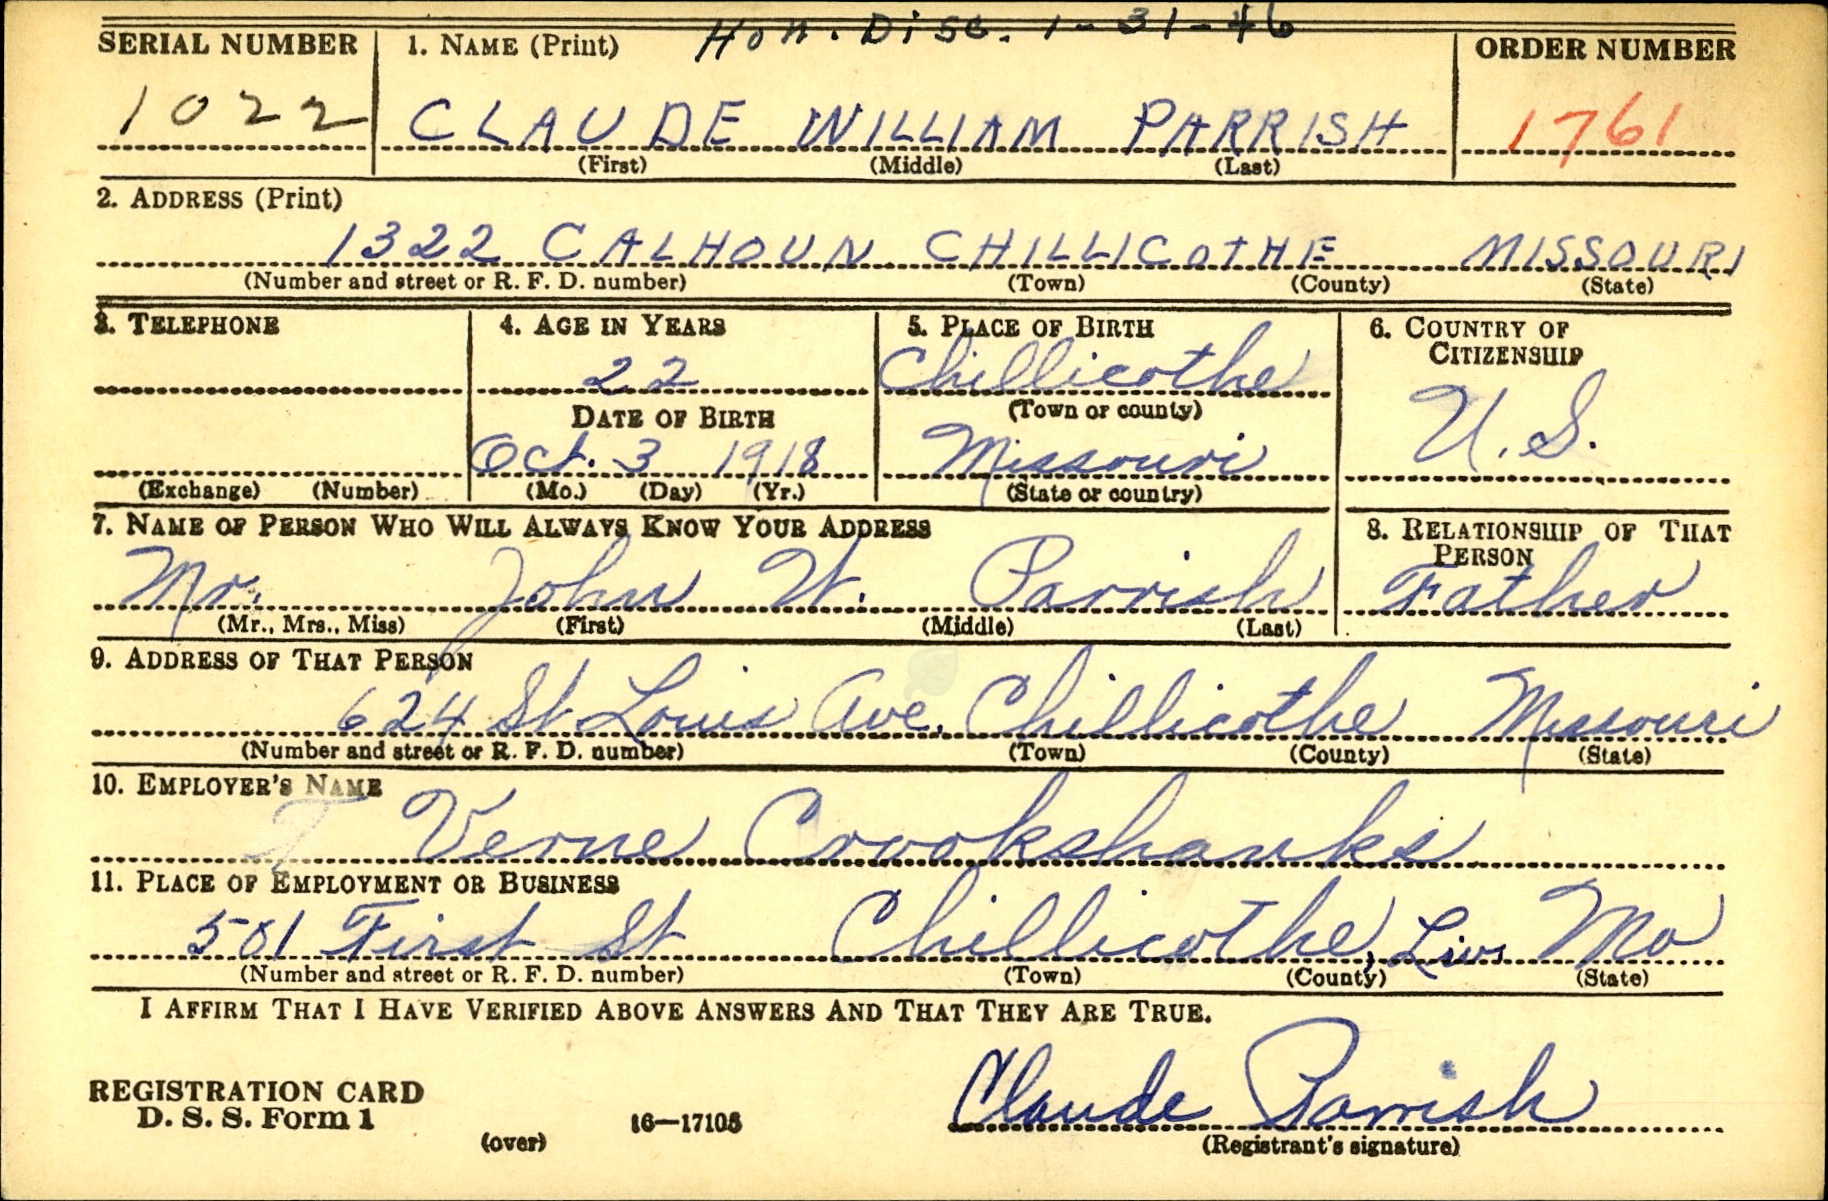 Hon. Disc. 1-31-46
SERIAL NUMBER 1. NAME (Print) ORDER NUMBER
1022 CLAUDE WILLIAM PARRISH 1761
(First) (Middle) (Last)
2. ADDRESS (Print)
1322 CALHOUN CHILLICOTHE MISSOURI
(Number and street or R. F. D. number) (Town) (County) (State)
3. TELEPHONE 4. AGE IN YEARS 5. PLACE OF BIRTH 6. COUNTRY OF CITIZENSHIP
22 Chillicothe U. S.
DATE OF BIRTH (Town or county)
Oct. 3 1918 Missouri
(Exchange) (Number) (Mo.) (Day) (Yr.) (State or country)
7. NAME OF PERSON WHO WILL ALWAYS KNOW YOUR ADDRESS 8. RELATIONSHIP OF THAT PERSON
Mr. John W. Parrish Father
(Mr., Mrs., Miss) (First) (Middle) (Last)
9. ADDRESS OF THAT PERSON
624 St Louis Ave. Chillicothe Missouri
(Number and street or R. F. D. number) (Town) (County) (State)
10. EMPLOYER'S NAME
Verne Crookshanks
11. PLACE OF EMPLOYMENT OR BUSINESS
501 First St Chillicothe, Liv. Mo
(Number and street or R. F. D. number) (Town) (County) (State)
I AFFIRM THAT I HAVE VERIFIED ABOVE ANSWERS AND THAT THEY ARE TRUE.
Claude Parrish
REGISTRATION CARD
D. S. S. Form 1 16—17105
(over) (Registrant's signature)